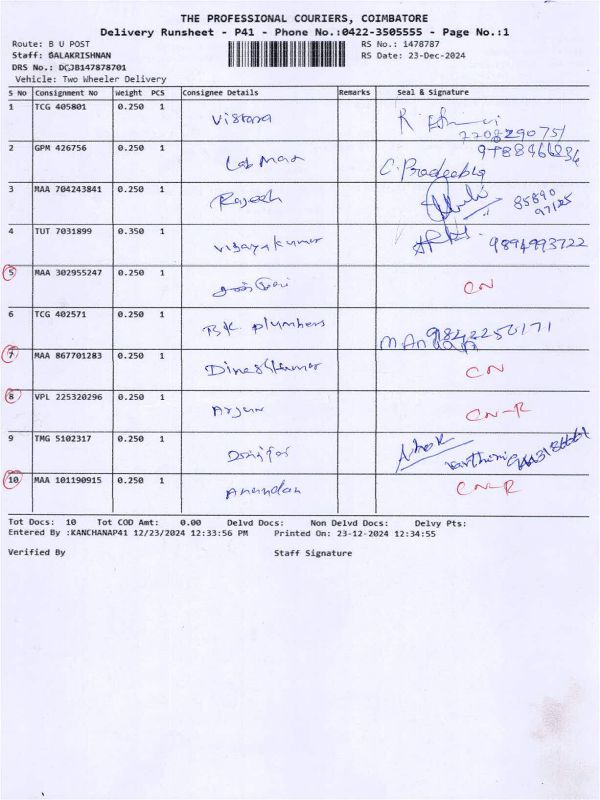 THE PROFESSIONAL COURIERS, COIMBATORE
Delivery Runsheet - P41 - Phone No.:0422-3505555 - Page No.:1
Route: B U POST RS No.: 1478787
Staff: BALAKRISHNAN RS Date: 23-Dec-2024
DRS No.: DCJB147878701
Vehicle: Two Wheeler Delivery
S No Consignment No Weight PCS Consignee Details Remarks Seal & Signature
1 TCG 405801 0.250 1 Vistara
7708290751
2 GPM 426756 0.250 1 Lab Man C. Pradeebha
3 MAA 704243841 0.250 1 Rajesh 85890
97125
4 TUT 7031899 0.350 1 Vijayakumar 9894993722
5 MAA 302955247 0.250 1 CN
6 TCG 402571 0.250 1 BK Plumbers 9842250171
7 MAA 867701283 0.250 1 Dineshkumar CN
8 VPL 225320296 0.250 1 Arjun CN-R
9 TMG 5102317 0.250 1 Ashok
10 MAA 101190915 0.250 1 Anandan CN-R
Tot Docs: 10 Tot COD Amt: 0.00 Delvd Docs: Non Delvd Docs: Delvy Pts:
Entered By :KANCHANAP41 12/23/2024 12:33:56 PM Printed On: 23-12-2024 12:34:55
Verified By Staff Signature